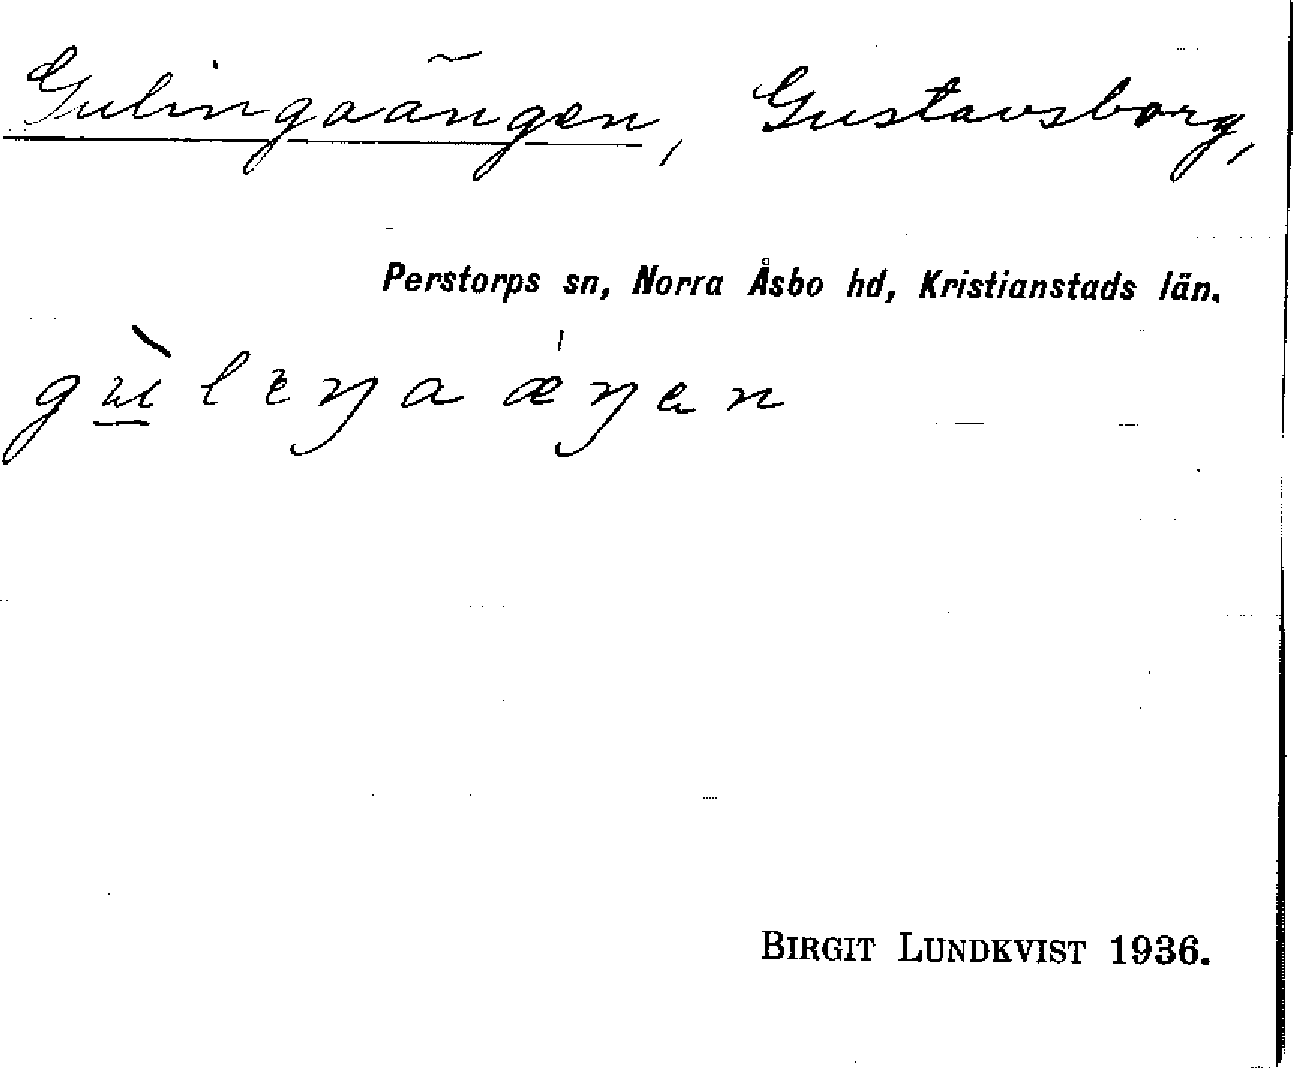 Gulingaängen, Gustavsborg,
Perstorps sn, Norra Åsbo hd, Kristianstads län.
gùleŋaǽŋən
BIRGIT LUNDKVIST 1936.